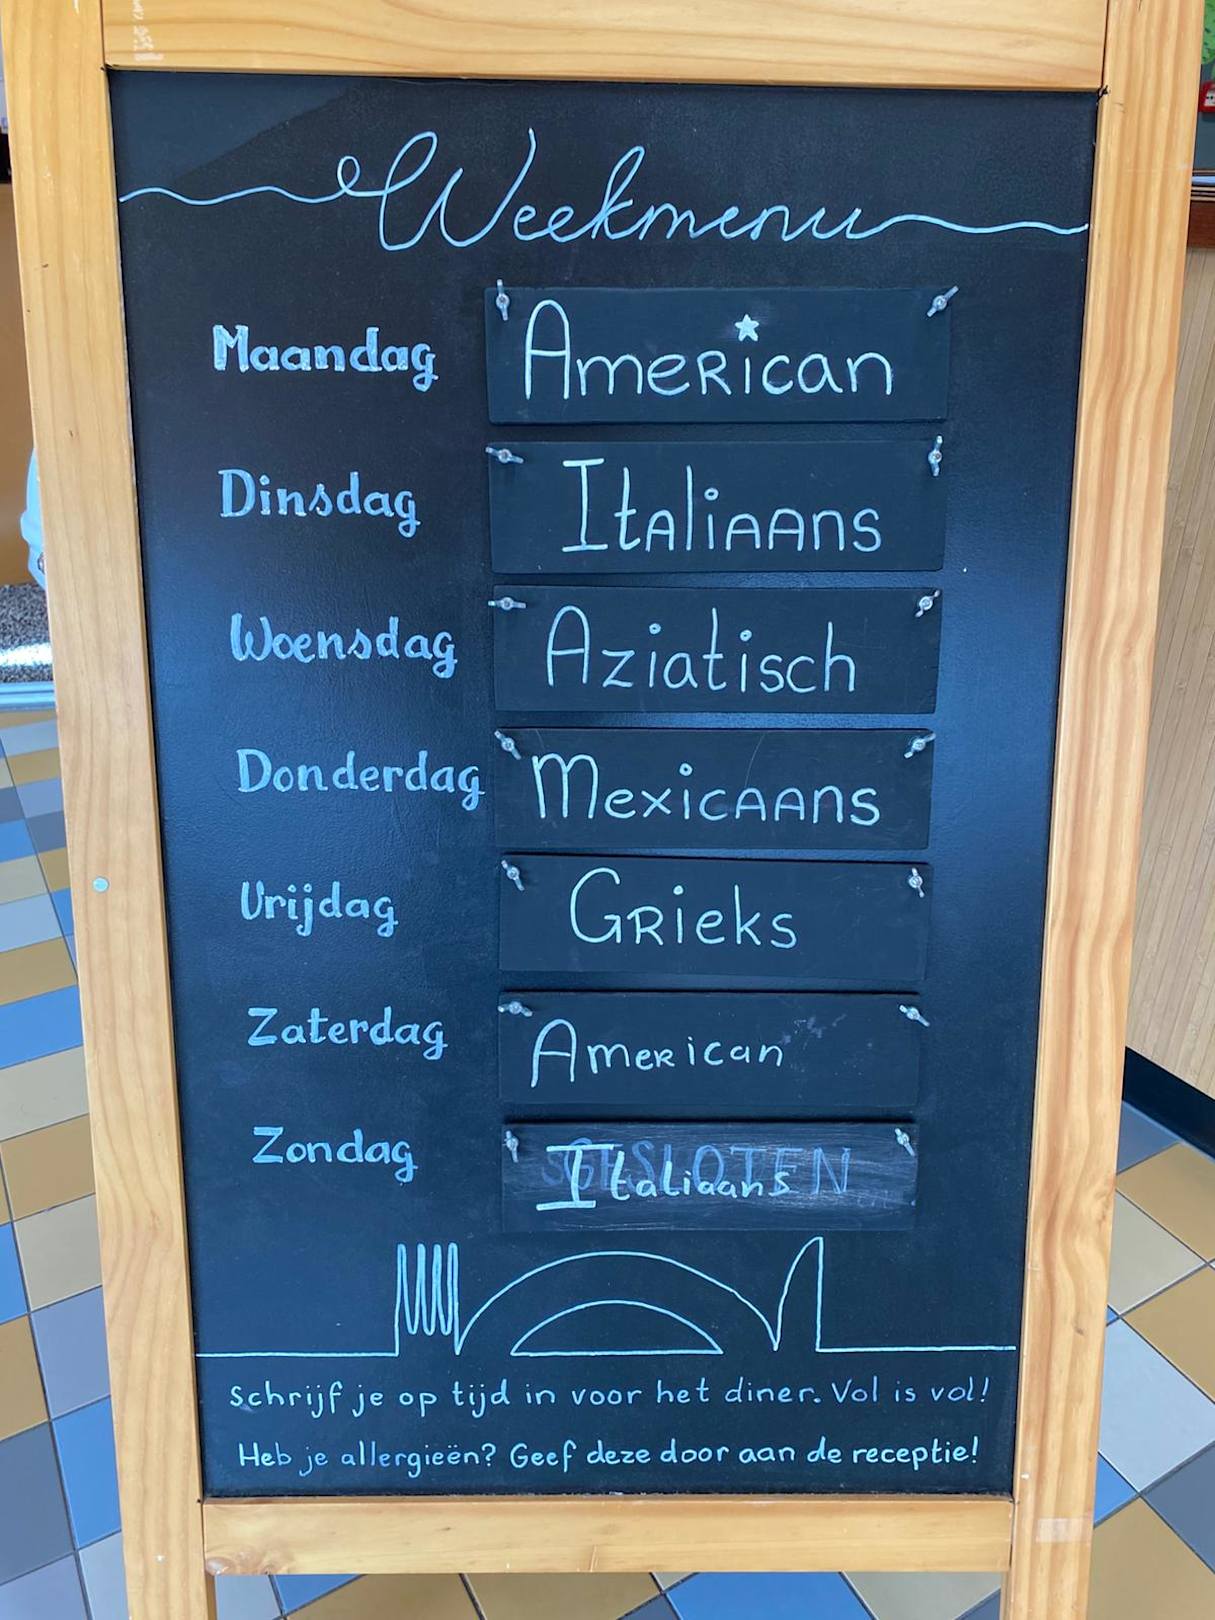 Weekmenu
Maandag American
Dinsdag Italiaans
Woensdag Aziatisch
Donderdag Mexicaans
Vrijdag Grieks
Zaterdag American
Zondag GESLOTEN Italiaans
Schrijf je op tijd in voor het diner. Vol is vol!
Heb je allergieën? Geef deze door aan de receptie!